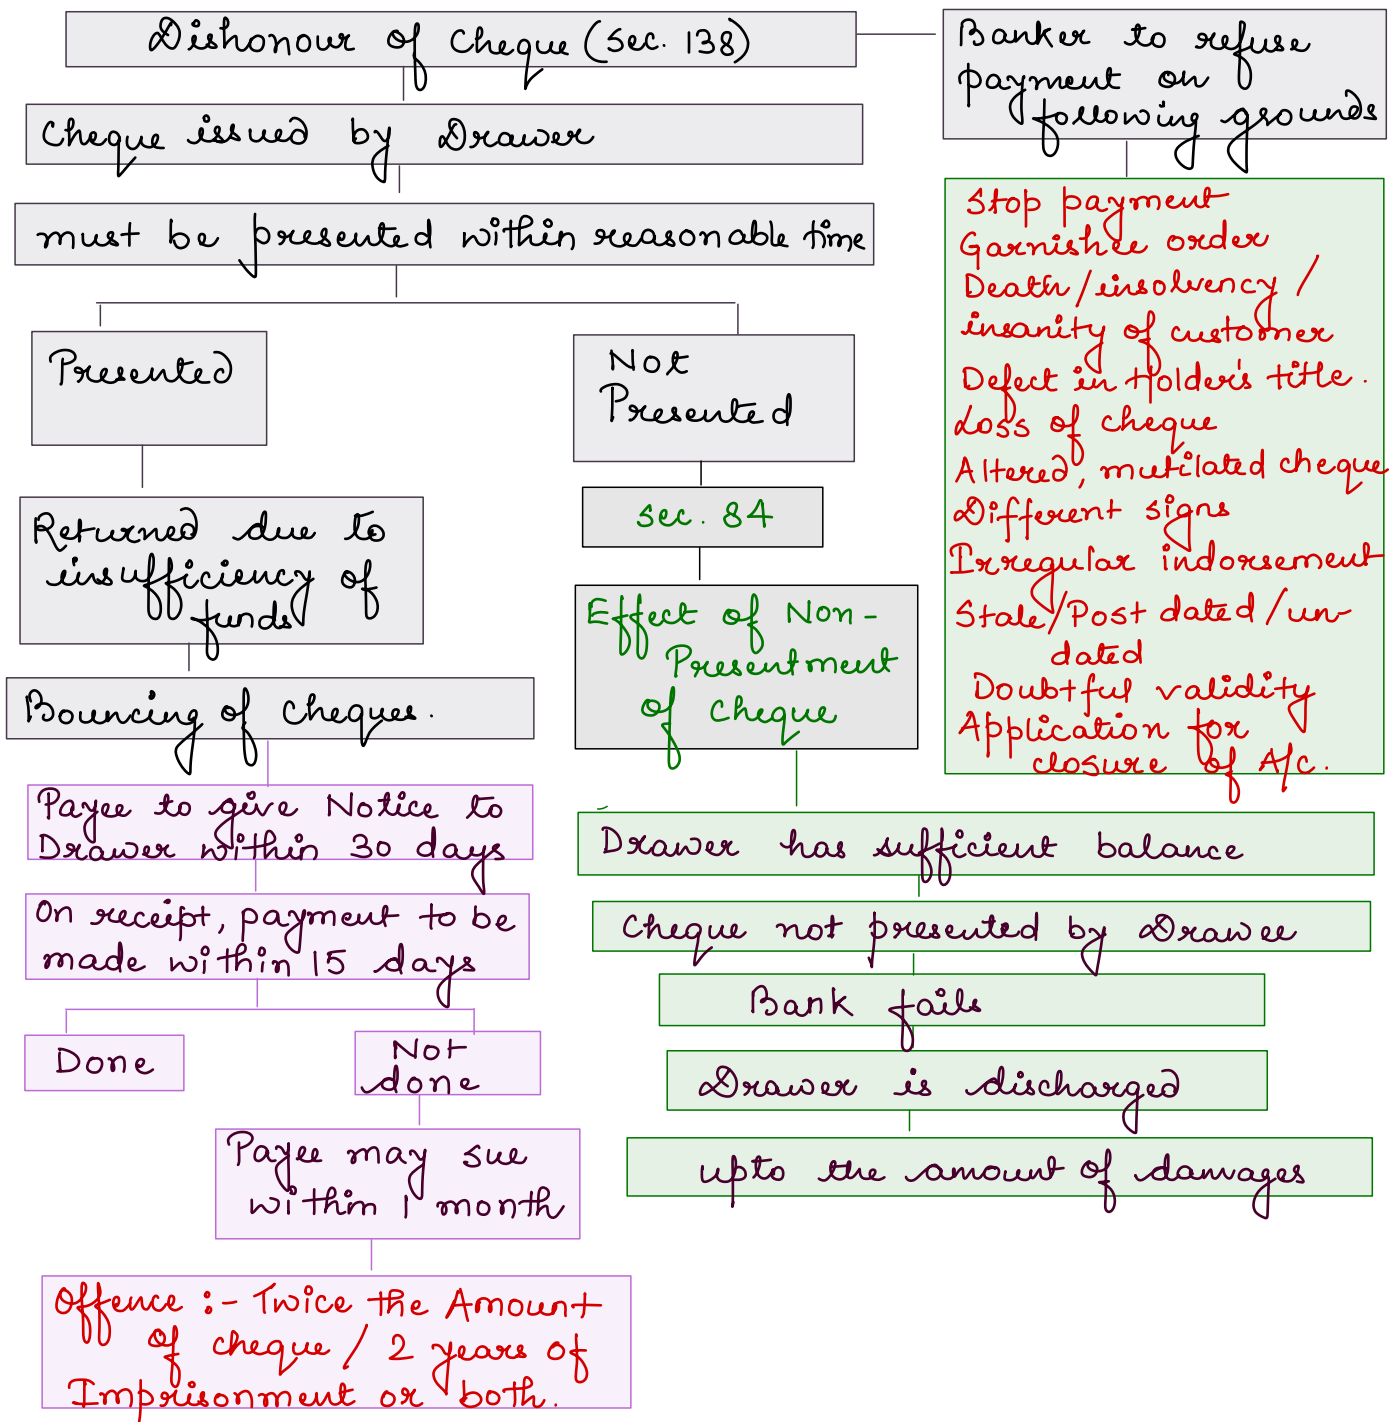 Dishonour of Cheque (Sec. 138)
Cheque issued by Drawer
must be presented within reasonable time
Presented
Returned due to
insufficiency of
funds
Bouncing of Cheques.
Payee to give Notice to
Drawer within 30 days
On receipt, payment to be
made within 15 days
Done
Not
done
Payee may sue
within 1 month
Offence :- Twice the Amount
of cheque / 2 years of
Imprisonment or both.
Not
Presented
Sec. 84
Effect of Non-
Presentment
of Cheque
Drawer has sufficient balance
Cheque not presented by Drawee
Bank fails
Drawer is discharged
upto the amount of damages
Banker to refuse
payment on
following grounds
Stop payment
Garnishee order
Death/insolvency /
insanity of customer
Defect in Holder's title.
Loss of cheque
Altered, mutilated cheque
Different signs
Irregular indorsement
Stale/Post dated/un-
dated
Doubtful validity
Application for
closure of A/c.